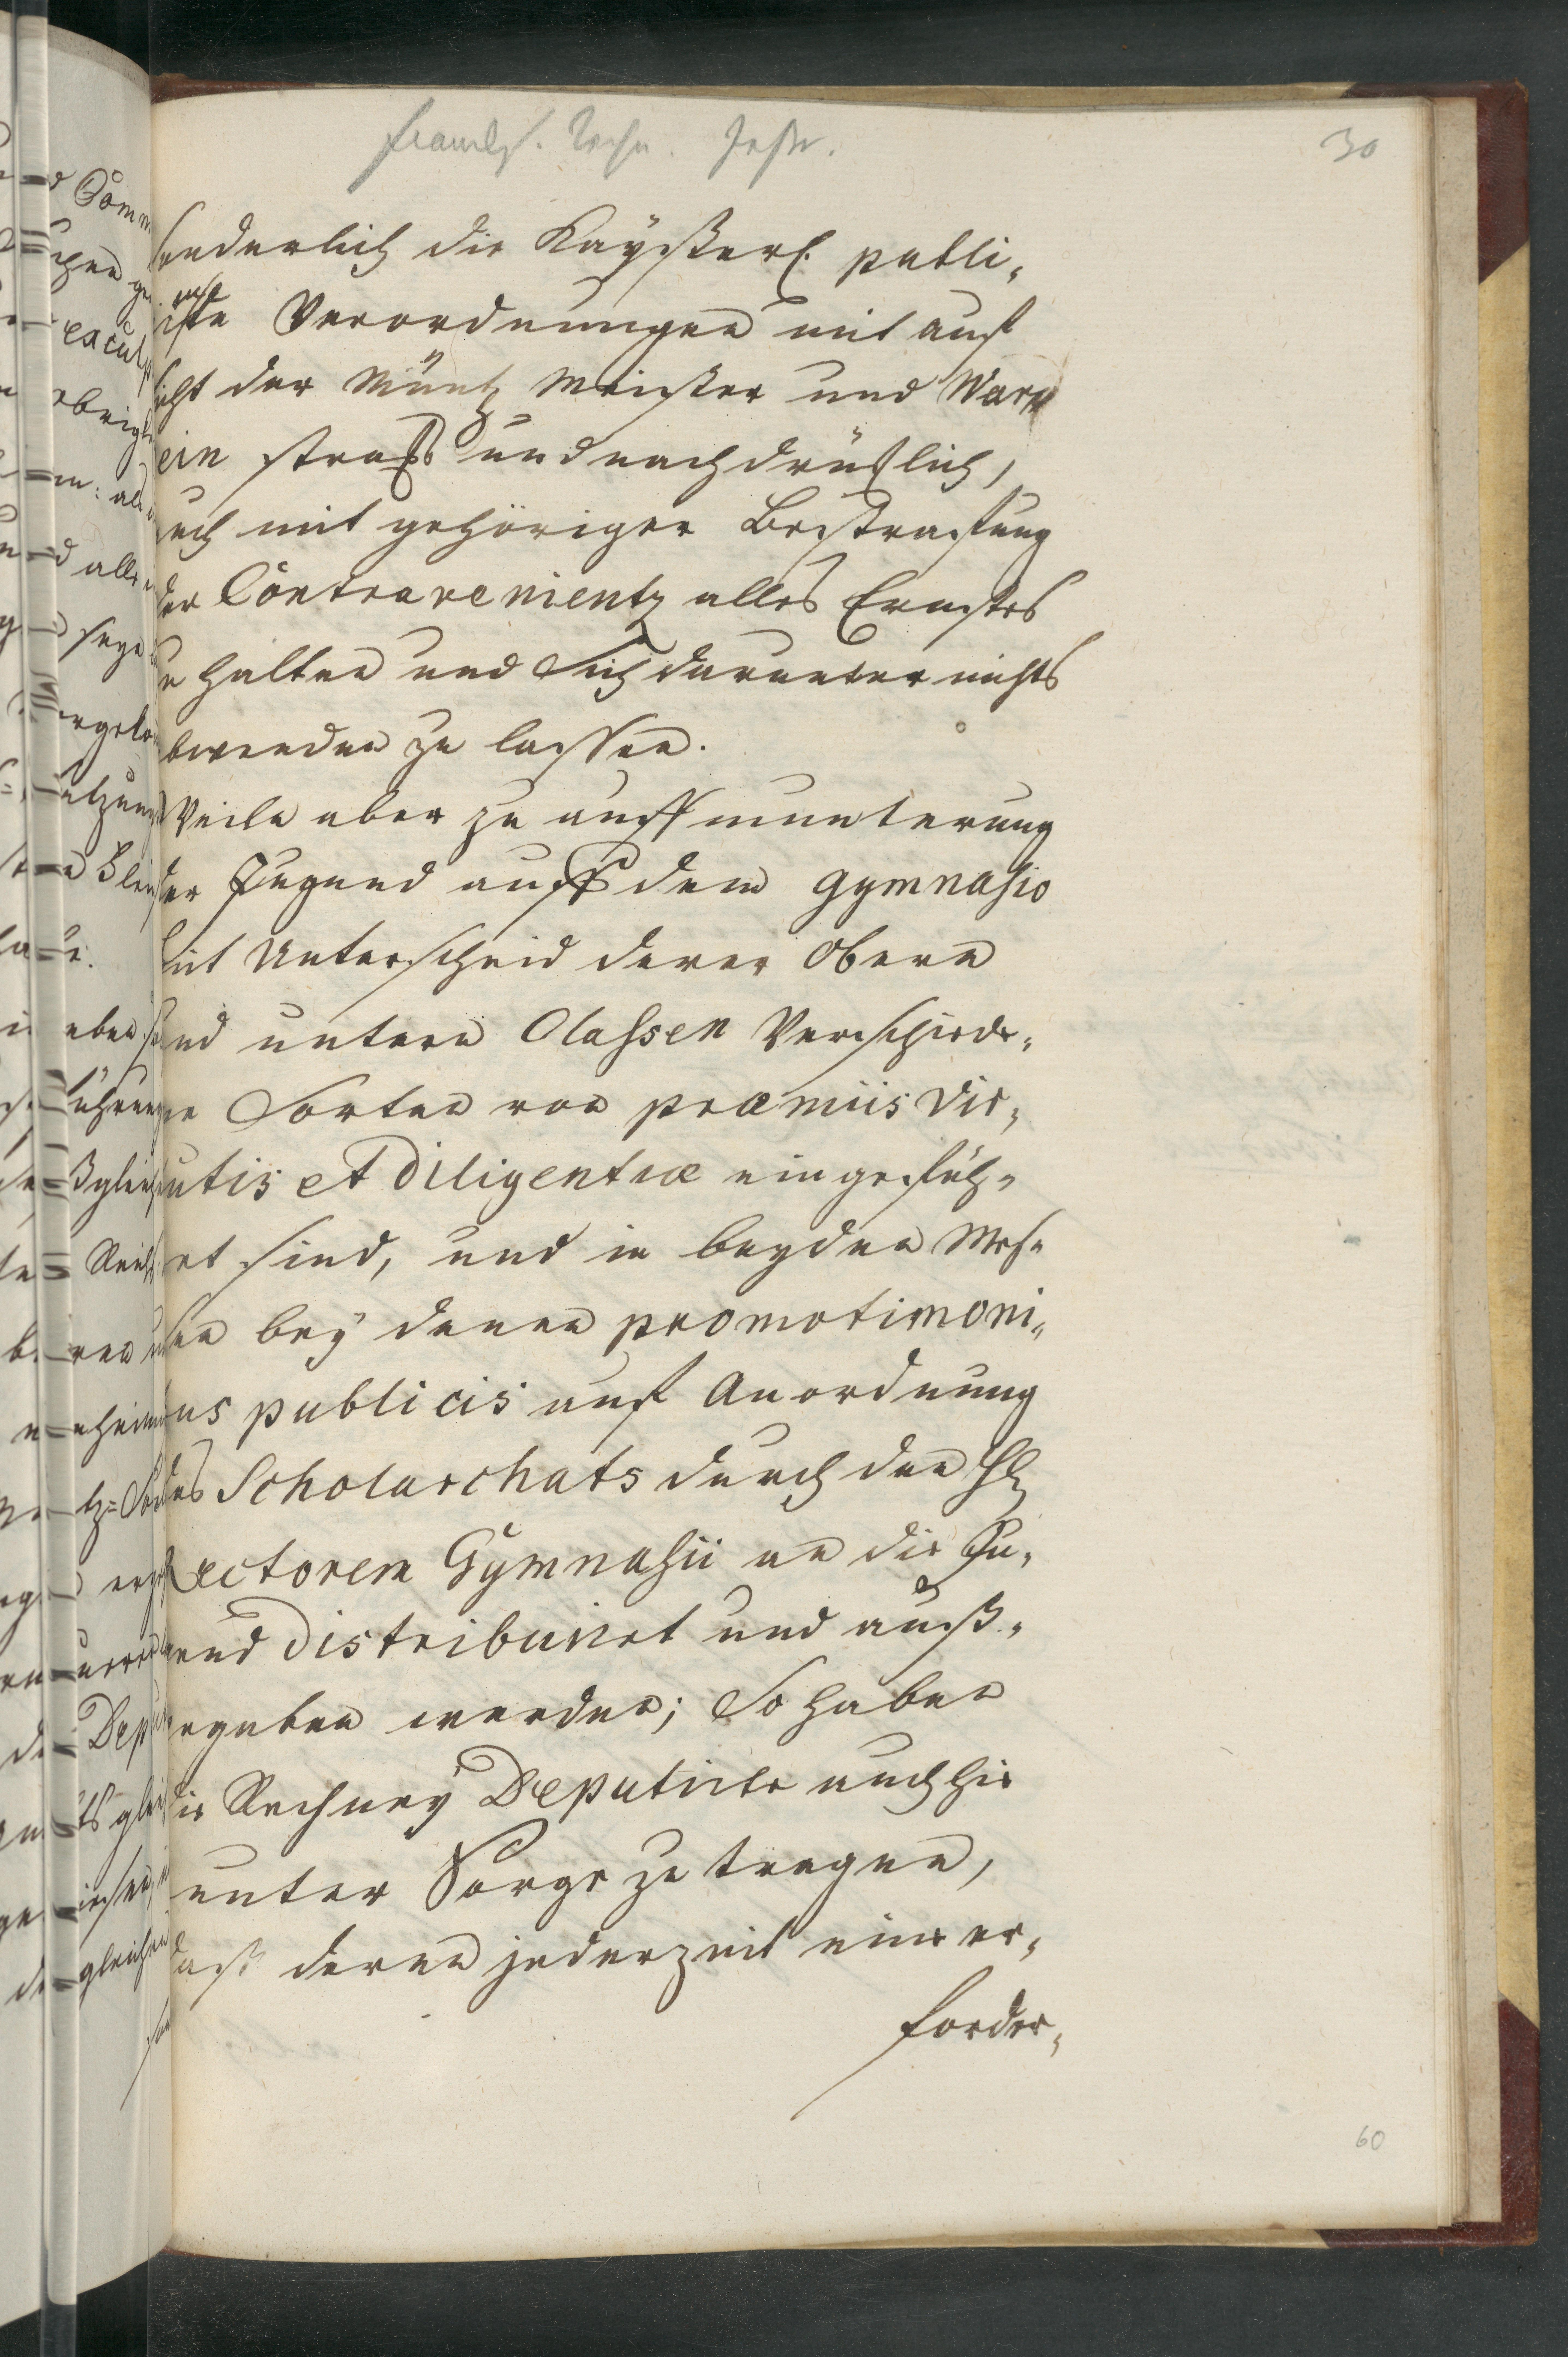 30
sonderlich die Kaÿßerl. publi„
cirte Verordnungen mit auf
sicht der Müntz Meister und War„
ein straks und nachdrücklich,
auch mit gehöriger Bestraffung
der Contravenientz alles Ernstes
zu halten und Sich darunter nichts
abwenden zu lassen.
Weile aber zu auffmunterung
der Jugend auff dem Gymnasio
mit Unterscheid derer Obern
und untern Classen Verschiede„
ne Sorten von præmiis Vir„
tutis et Diligentiæ eingefüh„
ret sind, und in beyden Mes„
sen beÿ denen promotioni„
bus publicis auf Anordnung
des Scholarchats durch den H.
Rectorem Gÿmnasii an die Ju„
gend distribuiret und auß„
gegeben werden; So haben
die Rechneÿ Deputirte auch hie
unter Sorge zu tragen,
daß deren jederzeit eine er„
forder„
60